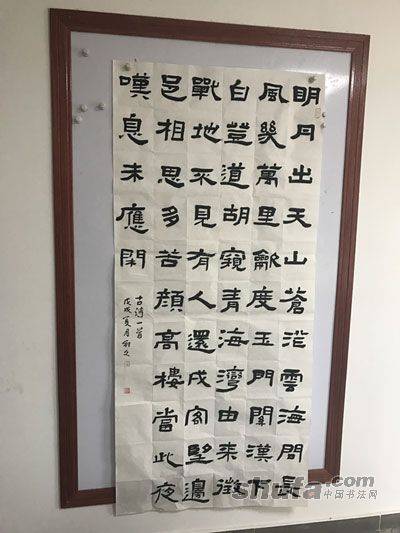 明月出天山蒼茫雲海間長
風幾萬里龡度玉門關漢下
白登道胡窺青海灣由來徵
戰地不見有人還戍客望邊
色相思多苦顏高樓當此夜
嘆息未應閑
古詩一首
戊戌夏月
shufa.com
中国书法网